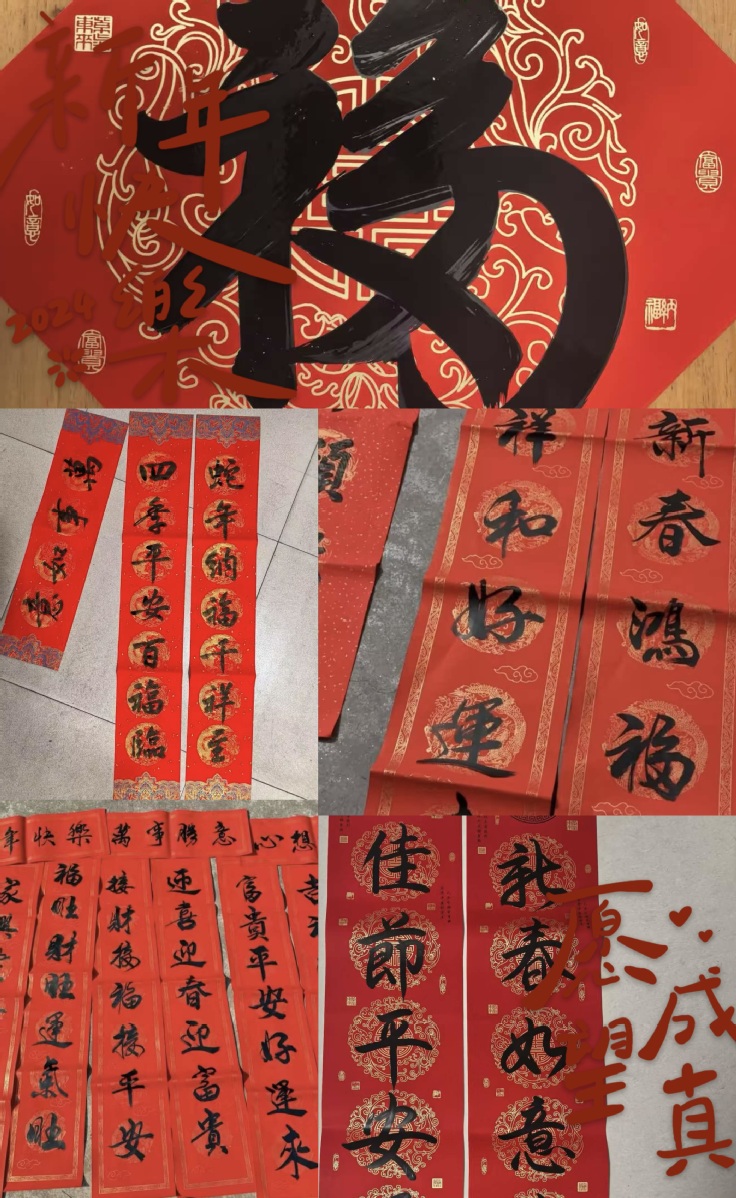 新年
快樂
2024
福
如意
富貴
如意
富貴
納福
萬事如意
四季平安百福臨
蛇年納福千祥至
順
祥和好運
新春鴻福
年快樂
萬事勝意
心想
家興
福旺財旺運氣旺
接財接福接平安
迎喜迎春迎富貴
富貴平安好運來
吉
佳節平安
新春如意
愿望
成真